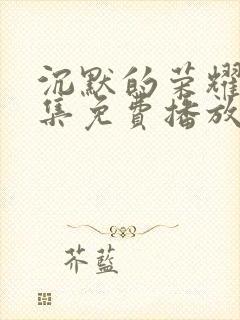 沉默的荣耀
集免费播放
芥蓝